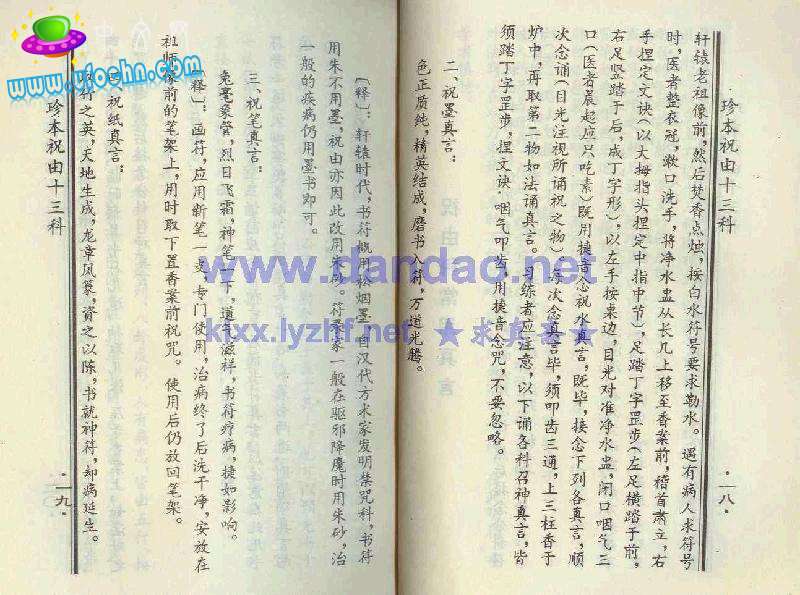 珍本祝由十三科
轩辕老祖像前，然后焚香点烛，按白水符号要求勒水。遇有病人求符号
时，医者整衣冠，漱口洗手，将净水盅从长几上移至香案前，稽首肃立，右
手捏定文诀（以大拇指头捏定中指中节），足踏丁字罡步（左足横踏于前，
右足竖踏于后，成丁字形），以左手按桌边，目光对准净水盅，闭口咽气三
口（医者晨起应只吃素）既用捷音念祝水真言，既毕，接念下列各真言，顺
次念诵（目光注视所诵祝之物）。每次念真言毕，须叩齿三通，上三柱香于
炉中，再取第二物如法诵真言。习练者应注意，以下诵各科召神真言，皆
须踏丁字罡步，捏文诀，咽气叩齿，用捷音念咒，不要忽略。
二、祝墨真言：
色正质纯，精英结成，磨书入符，万道光腾。
·一八·
〔释〕：轩辕时代，书符概用松烟墨，自汉代方术家发明禁咒科，书符
用朱不用墨，祝由亦因此改用朱砂。符录家一般在驱邪降魔时用朱砂，治
一般的疾病仍用墨书即可。
三、祝笔真言：
兔毫象管，烈日飞霜，神笔一下，道气滋祥，书符疗病，捷如影响。
〔释〕：画符，应用新笔一支，专门使用，治病终了后洗干净，安放在
祖师像前的笔架上，用时取下置香案前祝咒。使用后仍放回笔架。
祝纸真言：
符之英，天地生成，龙章凤篆，资之以陈，书就神符，却病延生。
珍本祝由十三科
·一九·
www.ufoshn.com
www.dandao.net
klxx.lyzhf.net ★求真者★